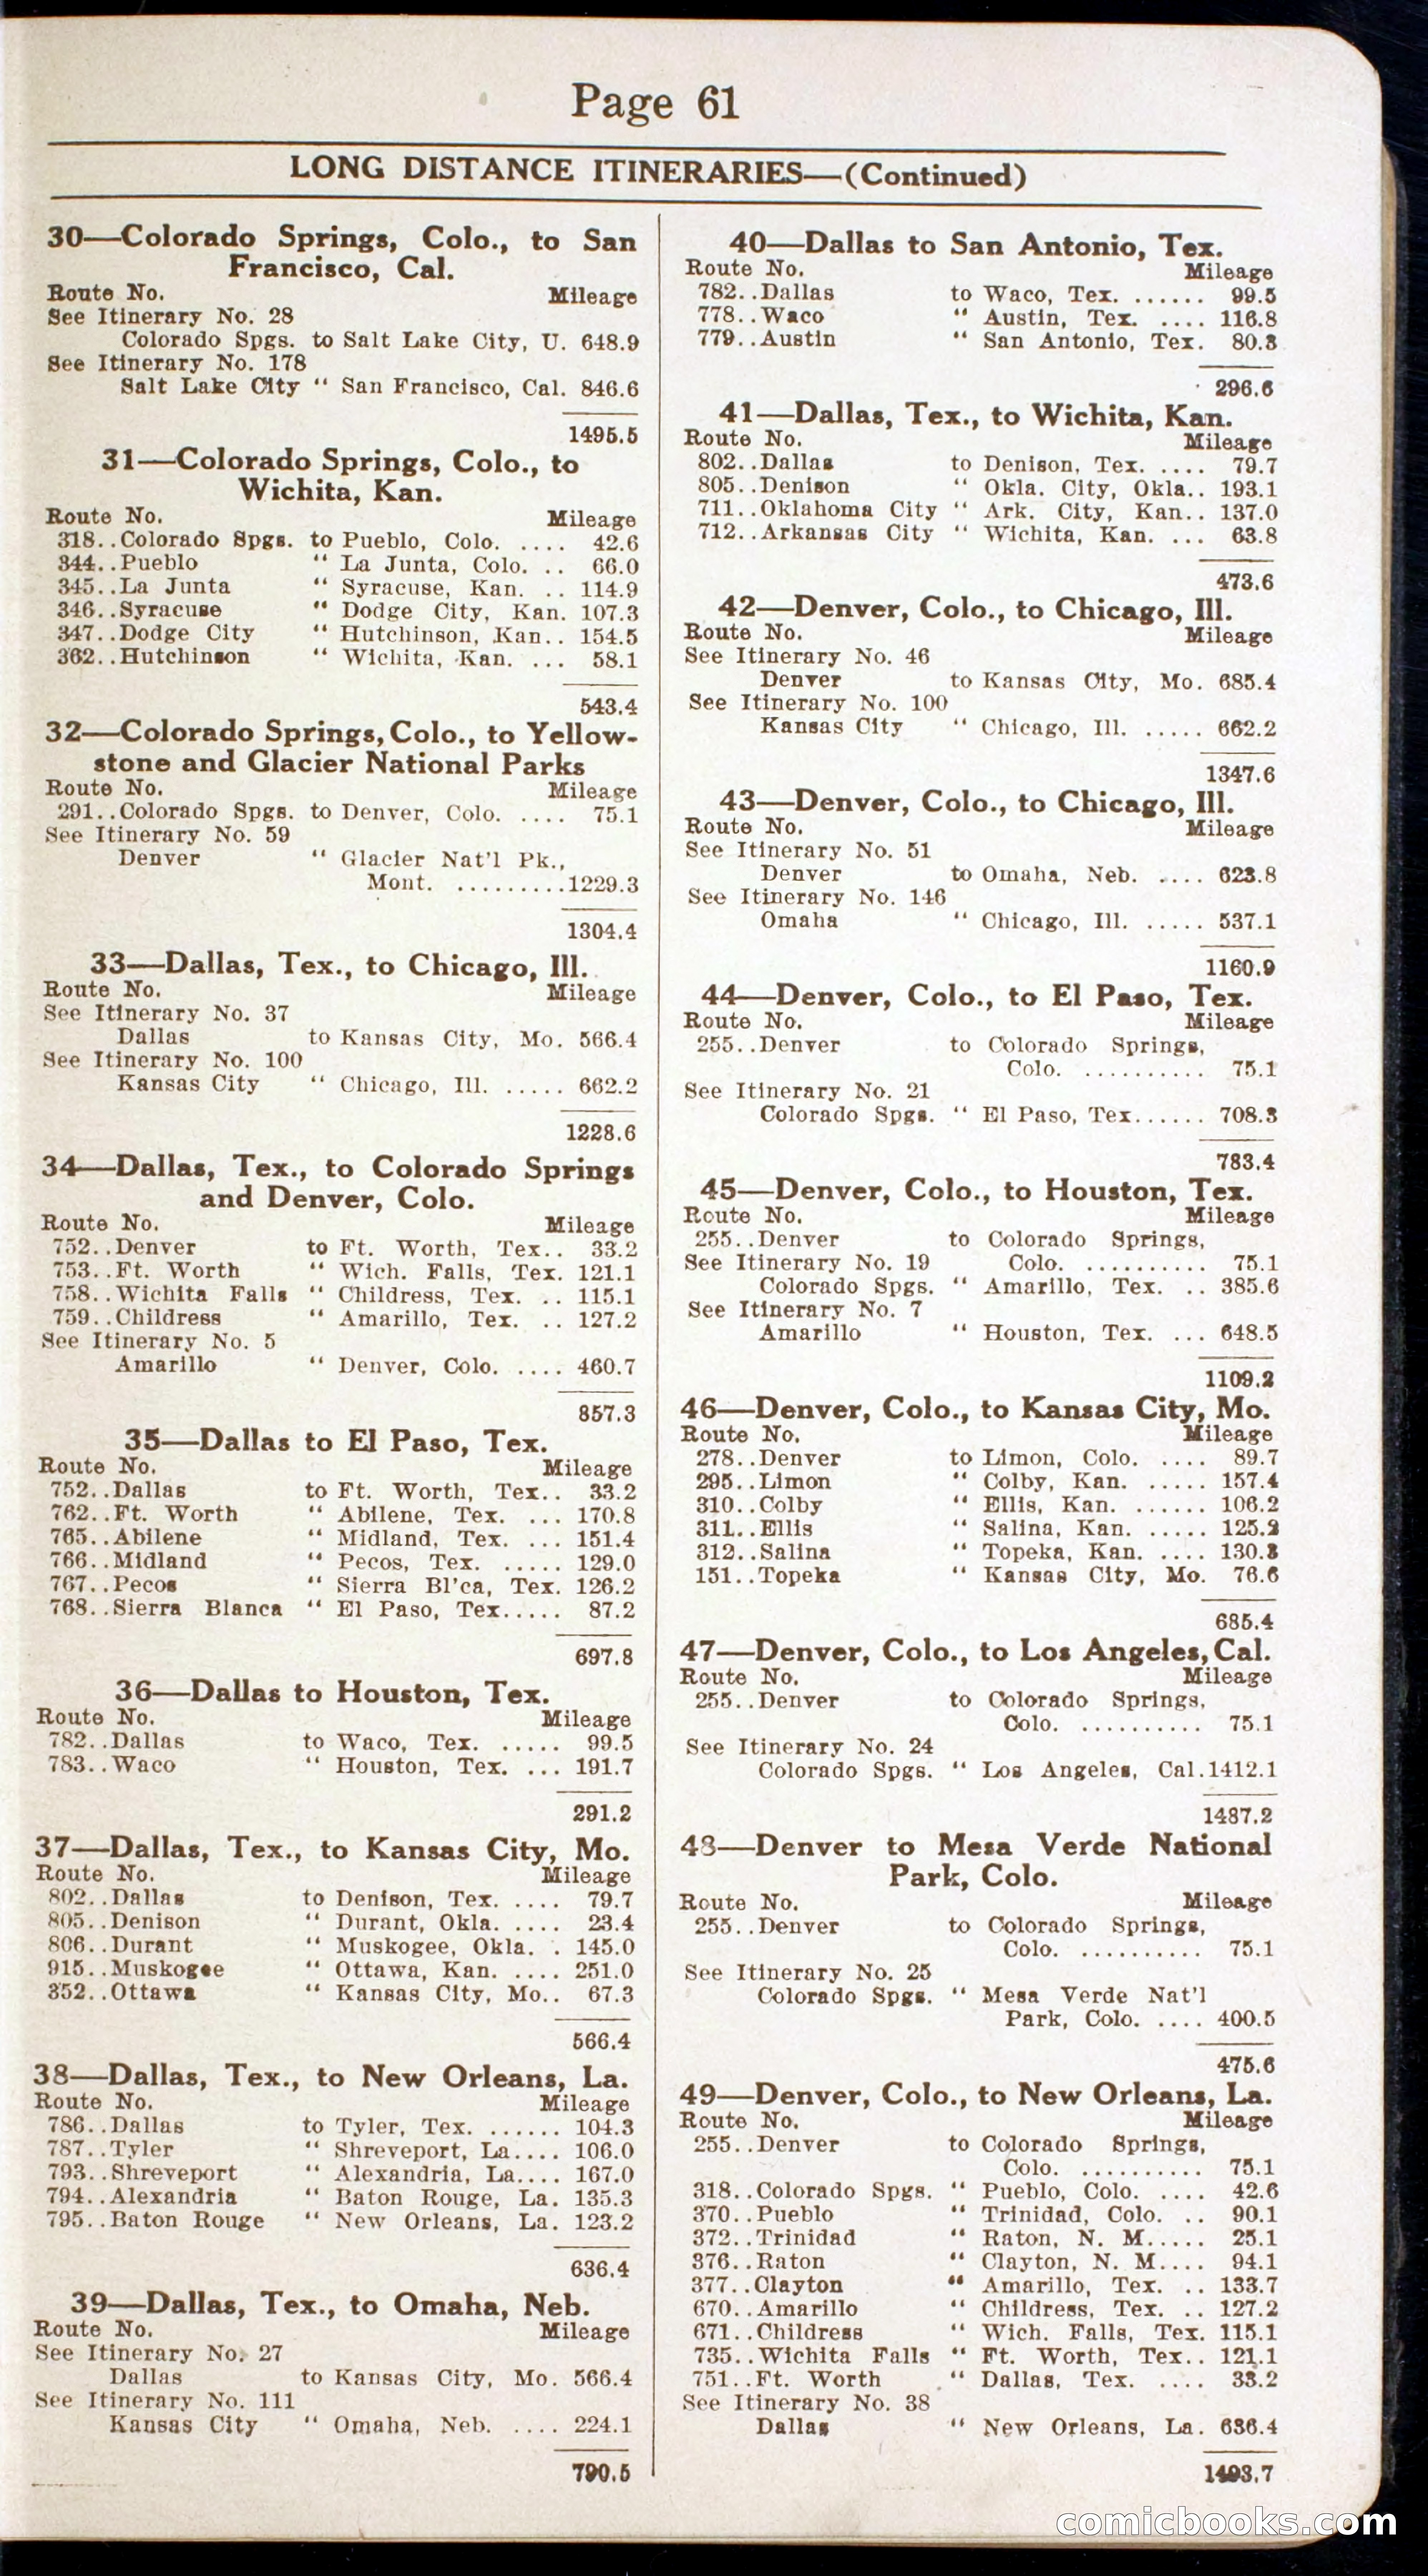 Page 61
LONG DISTANCE ITINERARIES—(Continued)
30—Colorado Springs, Colo., to San
Francisco, Cal.
Route No. Mileage
See Itinerary No. 28
Colorado Spgs. to Salt Lake City, U. 648.9
See Itinerary No. 178
Salt Lake City " San Francisco, Cal. 846.6
1495.5
31—Colorado Springs, Colo., to
Wichita, Kan.
Route No. Mileage
318..Colorado Spgs. to Pueblo, Colo. .... 42.6
344..Pueblo " La Junta, Colo. .. 66.0
345..La Junta " Syracuse, Kan. .. 114.9
346..Syracuse " Dodge City, Kan. 107.3
347..Dodge City " Hutchinson, Kan.. 154.5
362..Hutchinson " Wichita, Kan. ... 58.1
543.4
32—Colorado Springs, Colo., to Yellow-
stone and Glacier National Parks
Route No. Mileage
291..Colorado Spgs. to Denver, Colo. .... 75.1
See Itinerary No. 59
Denver " Glacier Nat'l Pk.,
Mont. .........1229.3
1304.4
33—Dallas, Tex., to Chicago, Ill.
Route No. Mileage
See Itinerary No. 37
Dallas to Kansas City, Mo. 566.4
See Itinerary No. 100
Kansas City " Chicago, Ill. ..... 662.2
1228.6
34—Dallas, Tex., to Colorado Springs
and Denver, Colo.
Route No. Mileage
752..Denver to Ft. Worth, Tex.. 33.2
753..Ft. Worth " Wich. Falls, Tex. 121.1
758..Wichita Falls " Childress, Tex. .. 115.1
759..Childress " Amarillo, Tex. .. 127.2
See Itinerary No. 5
Amarillo " Denver, Colo. .... 460.7
857.3
35—Dallas to El Paso, Tex.
Route No. Mileage
752..Dallas to Ft. Worth, Tex.. 33.2
762..Ft. Worth " Abilene, Tex. ... 170.8
765..Abilene " Midland, Tex. ... 151.4
766..Midland " Pecos, Tex. ..... 129.0
767..Pecos " Sierra Bl'ca, Tex. 126.2
768..Sierra Blanca " El Paso, Tex..... 87.2
697.8
36—Dallas to Houston, Tex.
Route No. Mileage
782..Dallas to Waco, Tex. ..... 99.5
783..Waco " Houston, Tex. ... 191.7
291.2
37—Dallas, Tex., to Kansas City, Mo.
Route No. Mileage
802..Dallas to Denison, Tex. .... 79.7
805..Denison " Durant, Okla. .... 23.4
806..Durant " Muskogee, Okla. . 145.0
915..Muskogee " Ottawa, Kan. .... 251.0
352..Ottawa " Kansas City, Mo.. 67.3
566.4
38—Dallas, Tex., to New Orleans, La.
Route No. Mileage
786..Dallas to Tyler, Tex. ...... 104.3
787..Tyler " Shreveport, La.... 106.0
793..Shreveport " Alexandria, La.... 167.0
794..Alexandria " Baton Rouge, La. 135.3
795..Baton Rouge " New Orleans, La. 123.2
636.4
39—Dallas, Tex., to Omaha, Neb.
Route No. Mileage
See Itinerary No. 27
Dallas to Kansas City, Mo. 566.4
See Itinerary No. 111
Kansas City " Omaha, Neb. .... 224.1
790.5
40—Dallas to San Antonio, Tex.
Route No. Mileage
782..Dallas to Waco, Tex. ...... 99.5
778..Waco " Austin, Tex. .... 116.8
779..Austin " San Antonio, Tex. 80.3
296.6
41—Dallas, Tex., to Wichita, Kan.
Route No. Mileage
802..Dallas to Denison, Tex. .... 79.7
805..Denison " Okla. City, Okla.. 193.1
711..Oklahoma City " Ark. City, Kan.. 137.0
712..Arkansas City " Wichita, Kan. ... 63.8
473.6
42—Denver, Colo., to Chicago, Ill.
Route No. Mileage
See Itinerary No. 46
Denver to Kansas City, Mo. 685.4
See Itinerary No. 100
Kansas City " Chicago, Ill. ..... 662.2
1347.6
43—Denver, Colo., to Chicago, Ill.
Route No. Mileage
See Itinerary No. 51
Denver to Omaha, Neb. .... 623.8
See Itinerary No. 146
Omaha " Chicago, Ill. ..... 537.1
1160.9
44—Denver, Colo., to El Paso, Tex.
Route No. Mileage
255..Denver to Colorado Springs,
Colo. .......... 75.1
See Itinerary No. 21
Colorado Spgs. " El Paso, Tex...... 708.3
783.4
45—Denver, Colo., to Houston, Tex.
Route No. Mileage
255..Denver to Colorado Springs,
See Itinerary No. 19 Colo. .......... 75.1
Colorado Spgs. " Amarillo, Tex. .. 385.6
See Itinerary No. 7
Amarillo " Houston, Tex. ... 648.5
1109.2
46—Denver, Colo., to Kansas City, Mo.
Route No. Mileage
278..Denver to Limon, Colo. .... 89.7
295..Limon " Colby, Kan. ..... 157.4
310..Colby " Ellis, Kan. ...... 106.2
311..Ellis " Salina, Kan. ..... 125.2
312..Salina " Topeka, Kan. .... 130.3
151..Topeka " Kansas City, Mo. 76.6
685.4
47—Denver, Colo., to Los Angeles, Cal.
Route No. Mileage
255..Denver to Colorado Springs,
Colo. .......... 75.1
See Itinerary No. 24
Colorado Spgs. " Los Angeles, Cal.1412.1
1487.2
48—Denver to Mesa Verde National
Park, Colo.
Route No. Mileage
255..Denver to Colorado Springs,
Colo. .......... 75.1
See Itinerary No. 25
Colorado Spgs. " Mesa Verde Nat'l
Park, Colo. .... 400.5
475.6
49—Denver, Colo., to New Orleans, La.
Route No. Mileage
255..Denver to Colorado Springs,
Colo. .......... 75.1
318..Colorado Spgs. " Pueblo, Colo. .... 42.6
370..Pueblo " Trinidad, Colo. .. 90.1
372..Trinidad " Raton, N. M..... 25.1
376..Raton " Clayton, N. M.... 94.1
377..Clayton " Amarillo, Tex. .. 133.7
670..Amarillo " Childress, Tex. .. 127.2
671..Childress " Wich. Falls, Tex. 115.1
735..Wichita Falls " Ft. Worth, Tex.. 121.1
751..Ft. Worth " Dallas, Tex. .... 33.2
See Itinerary No. 38
Dallas " New Orleans, La. 636.4
1493.7
comicbooks.com